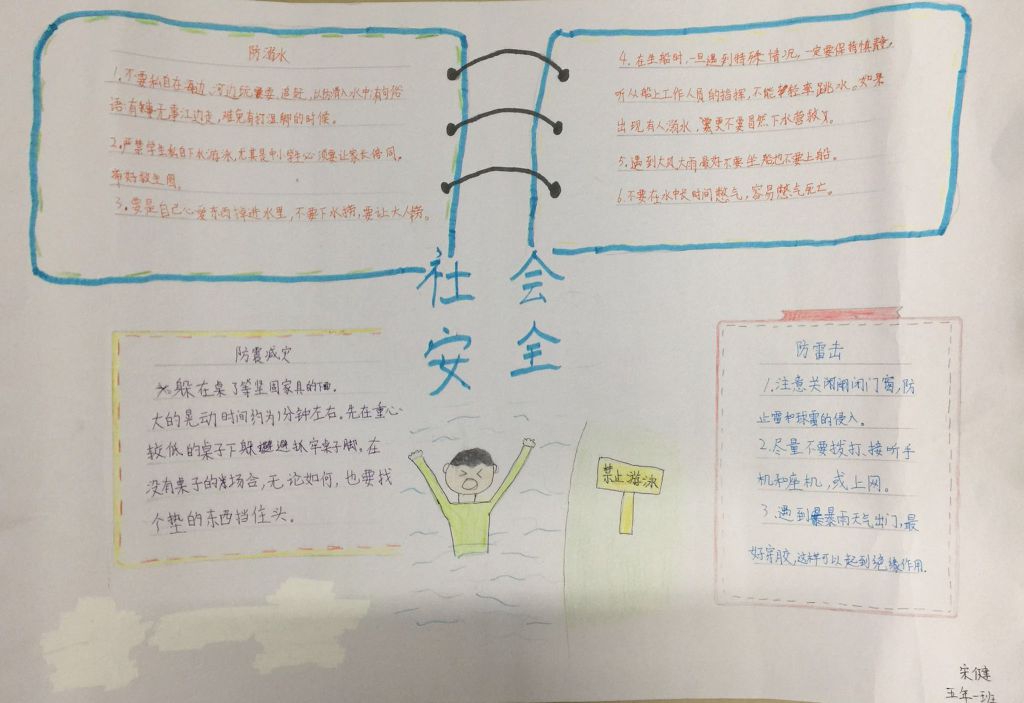 防溺水
1.不要私自在海边、河边玩耍、追玩,以防滑入水中有句俗
语:有事无事江边走,难免有打湿脚的时候。
2.严禁学生私自下水游泳,尤其是中小学生必须要让家长陪同。
带好救生圈。
3.要是自己心爱东西掉进水里,不要下水捞,要让大人捞。
4.在坐船时,一旦遇到特殊情况,一定要保持镇静,
听从船上工作人员的指挥,不能轻率跳水。如果
出现有人溺水,更不要冒然下水营救。
5.遇到大风大雨最好不要坐船也不要上船。
6.不要在水中长时间憋气,容易憋气死亡。
社会
安全
防震减灾
躲在桌子等坚固家具的下面。
大的晃动时间约为1分钟左右。先在重心
较低的桌子下躲避抓牢桌子脚。在
没有桌子的场合,无论如何,也要找
个垫的东西挡住头。
禁止游泳
防雷击
1.注意关闭门窗,防
止雷和球雷的侵入。
2.尽量不要拨打、接听手
机和座机,或上网。
3.遇到暴雨天气出门,最
好穿胶,这样可以起到绝缘作用.
宋健
五年一班